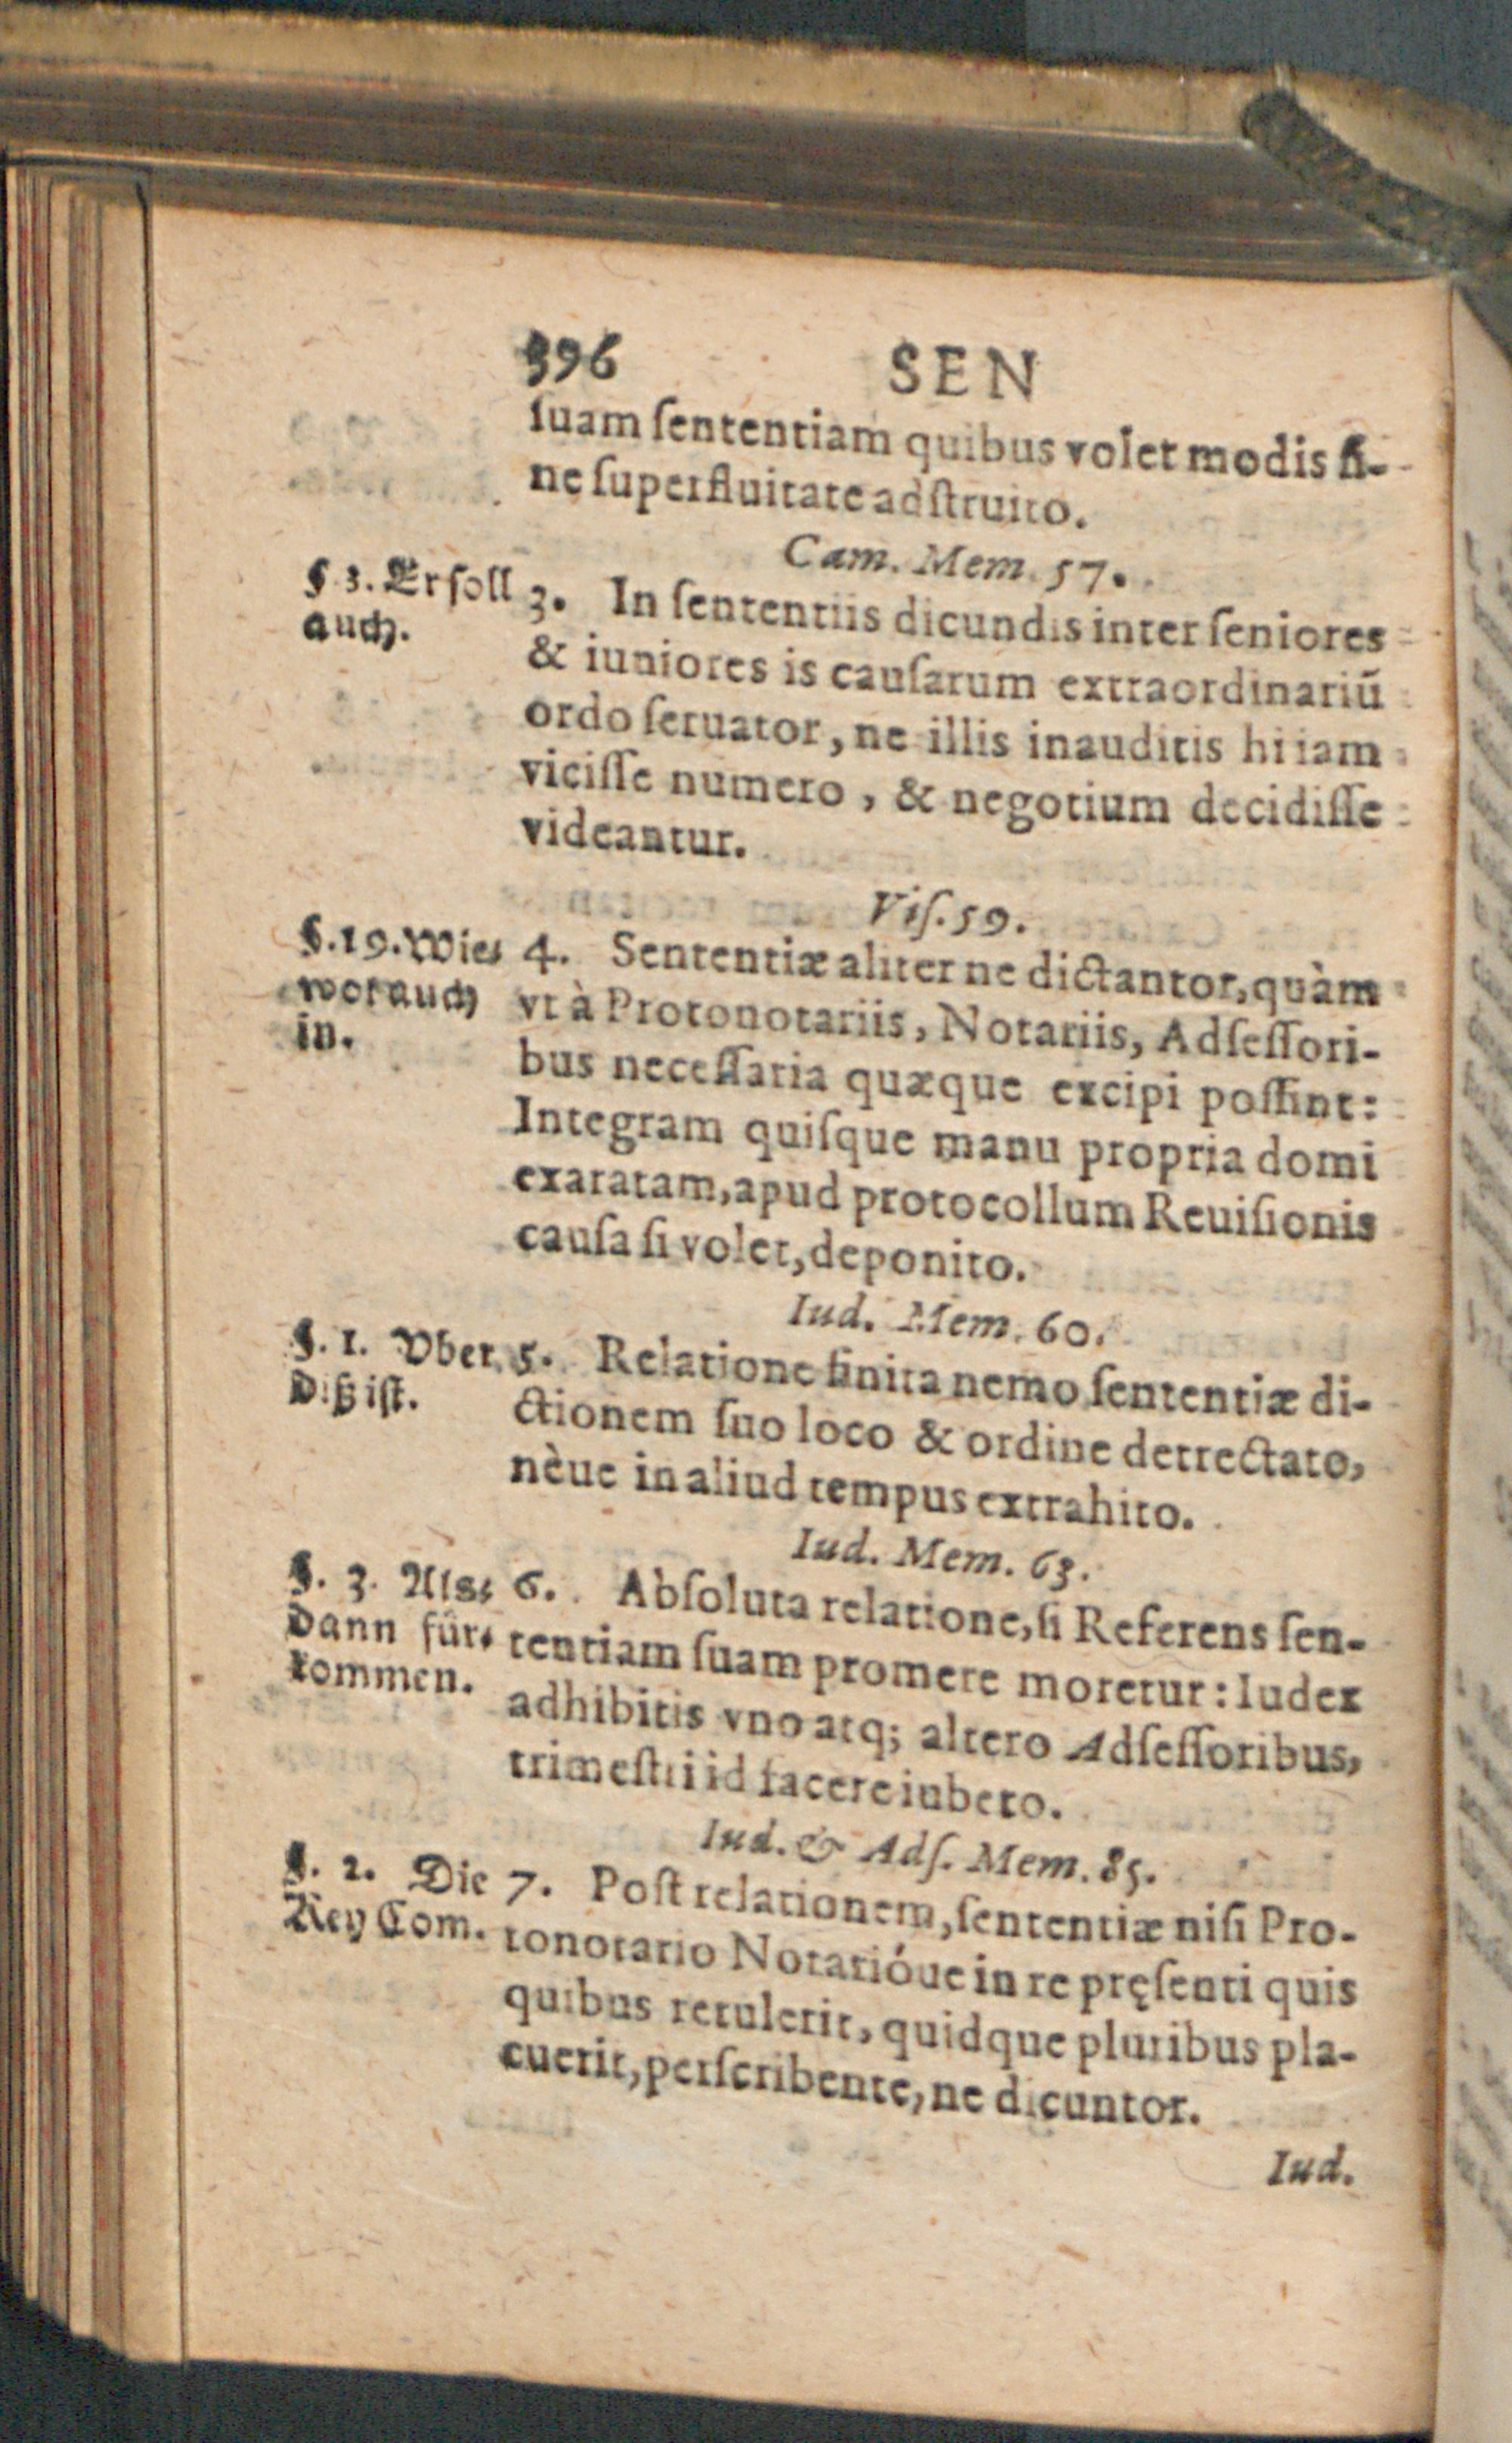 396 SEN
ſuam ſententiam quibus volet modis ſi-
ne ſuperfluitate adſtruito.
Cam. Mem. 57.
§ 3. Er ſoll
auch.
3. In ſententiis dicundis inter ſeniores
& iuniores is cauſarum extraordinariū
ordo ſeruator, ne illis inauditis hi iam
viciſſe numero, & negotium decidiſſe
videantur.
Viſ. 59.
§. 19. Wie
worauch
in.
4. Sententiæ aliter ne dictantor, quàm
vt à Protonotariis, Notariis, Adſeſſori-
bus neceſſaria quæque excipi poſſint:
Integram quiſque manu propria domi
exaratam, apud protocollum Reuiſionis
cauſa ſi volet, deponito.
Iud. Mem. 60.
§. 1. Vber
diß iſt.
5. Relatione finita nemo ſententiæ di-
ctionem ſuo loco & ordine detrectato,
nèue in aliud tempus extrahito.
Iud. Mem. 63.
§. 3. Als⸗
dann für⸗
kommen.
6. Abſoluta relatione, ſi Referens ſen-
tentiam ſuam promere moretur: Iudex
adhibitis vno atq; altero Adſeſſoribus,
trimeſtri id facere iubeto.
Iud. & Adſ. Mem. 85.
§. 2. Die
Rey Com.
7. Poſt relationem, ſententiæ niſi Pro-
tonotario Notarióue in re pręſenti quis
quibus retulerit, quidque pluribus pla-
cuerit, perſcribente, ne dicuntor.
Iud.